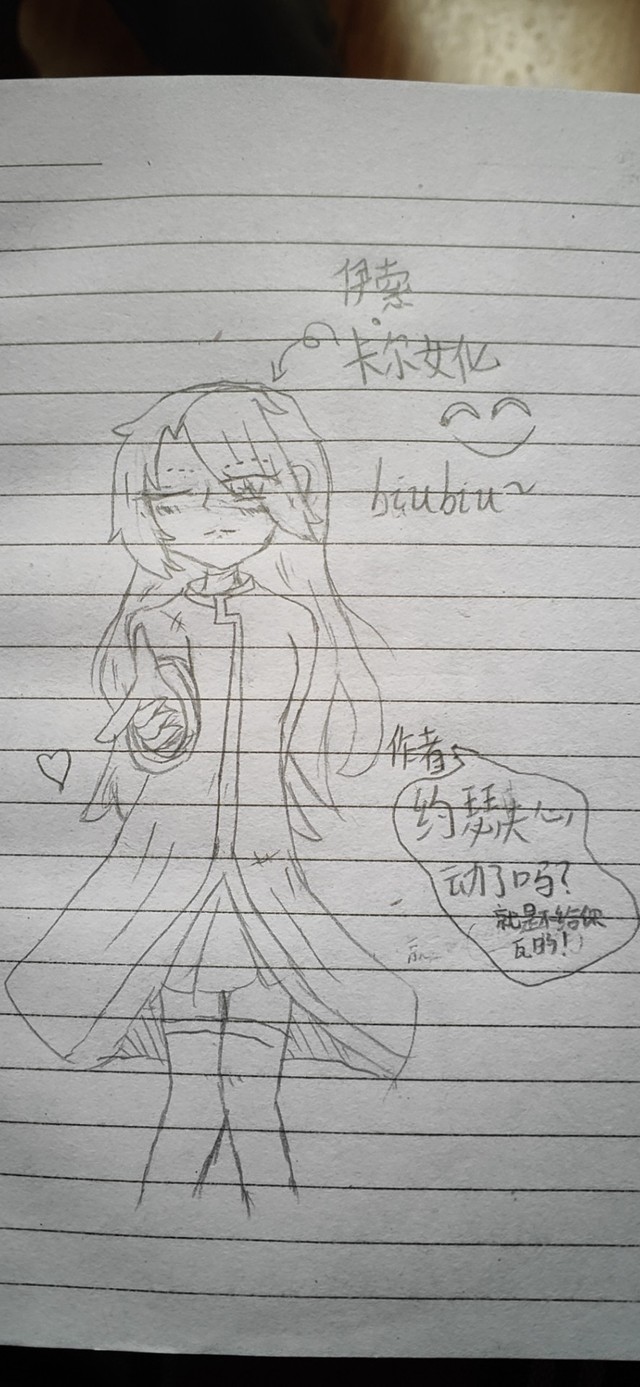 伊索
·
卡尔女化
biubiu~
作者
约瑟夫心
动了吗?
就是不给你
瓦的!